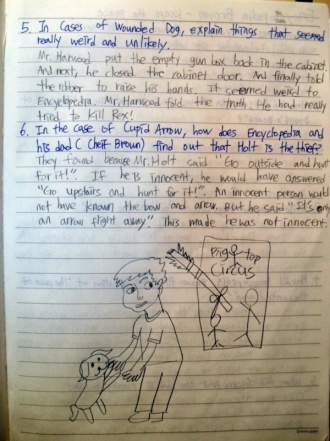 5. In Cases of Wounded Dog, explain things that seemed
really weird and unlikely.
Mr. Harwood put the empty gun box back in the cabinet.
And next, he closed the cabinet door. And finally told
the robber to raise his hands. It seemed weird to
Encyclopedia. Mr. Harwood told the truth. He had really
tried to kill Rex!
6. In the case of Cupid Arrow, how does Encyclopedia and
his dad (Cheif Brown) find out that Holt is the thief?
They found because Mr. Holt said "Go outside and hunt
for it!". If he is innocent, he would have answered
"Go upstairs and hunt for it!". An innocent person would
not have known the bow and arrow. But he said "It's only
an arrow flight away". This made he was not innocent.
Big top
Circus